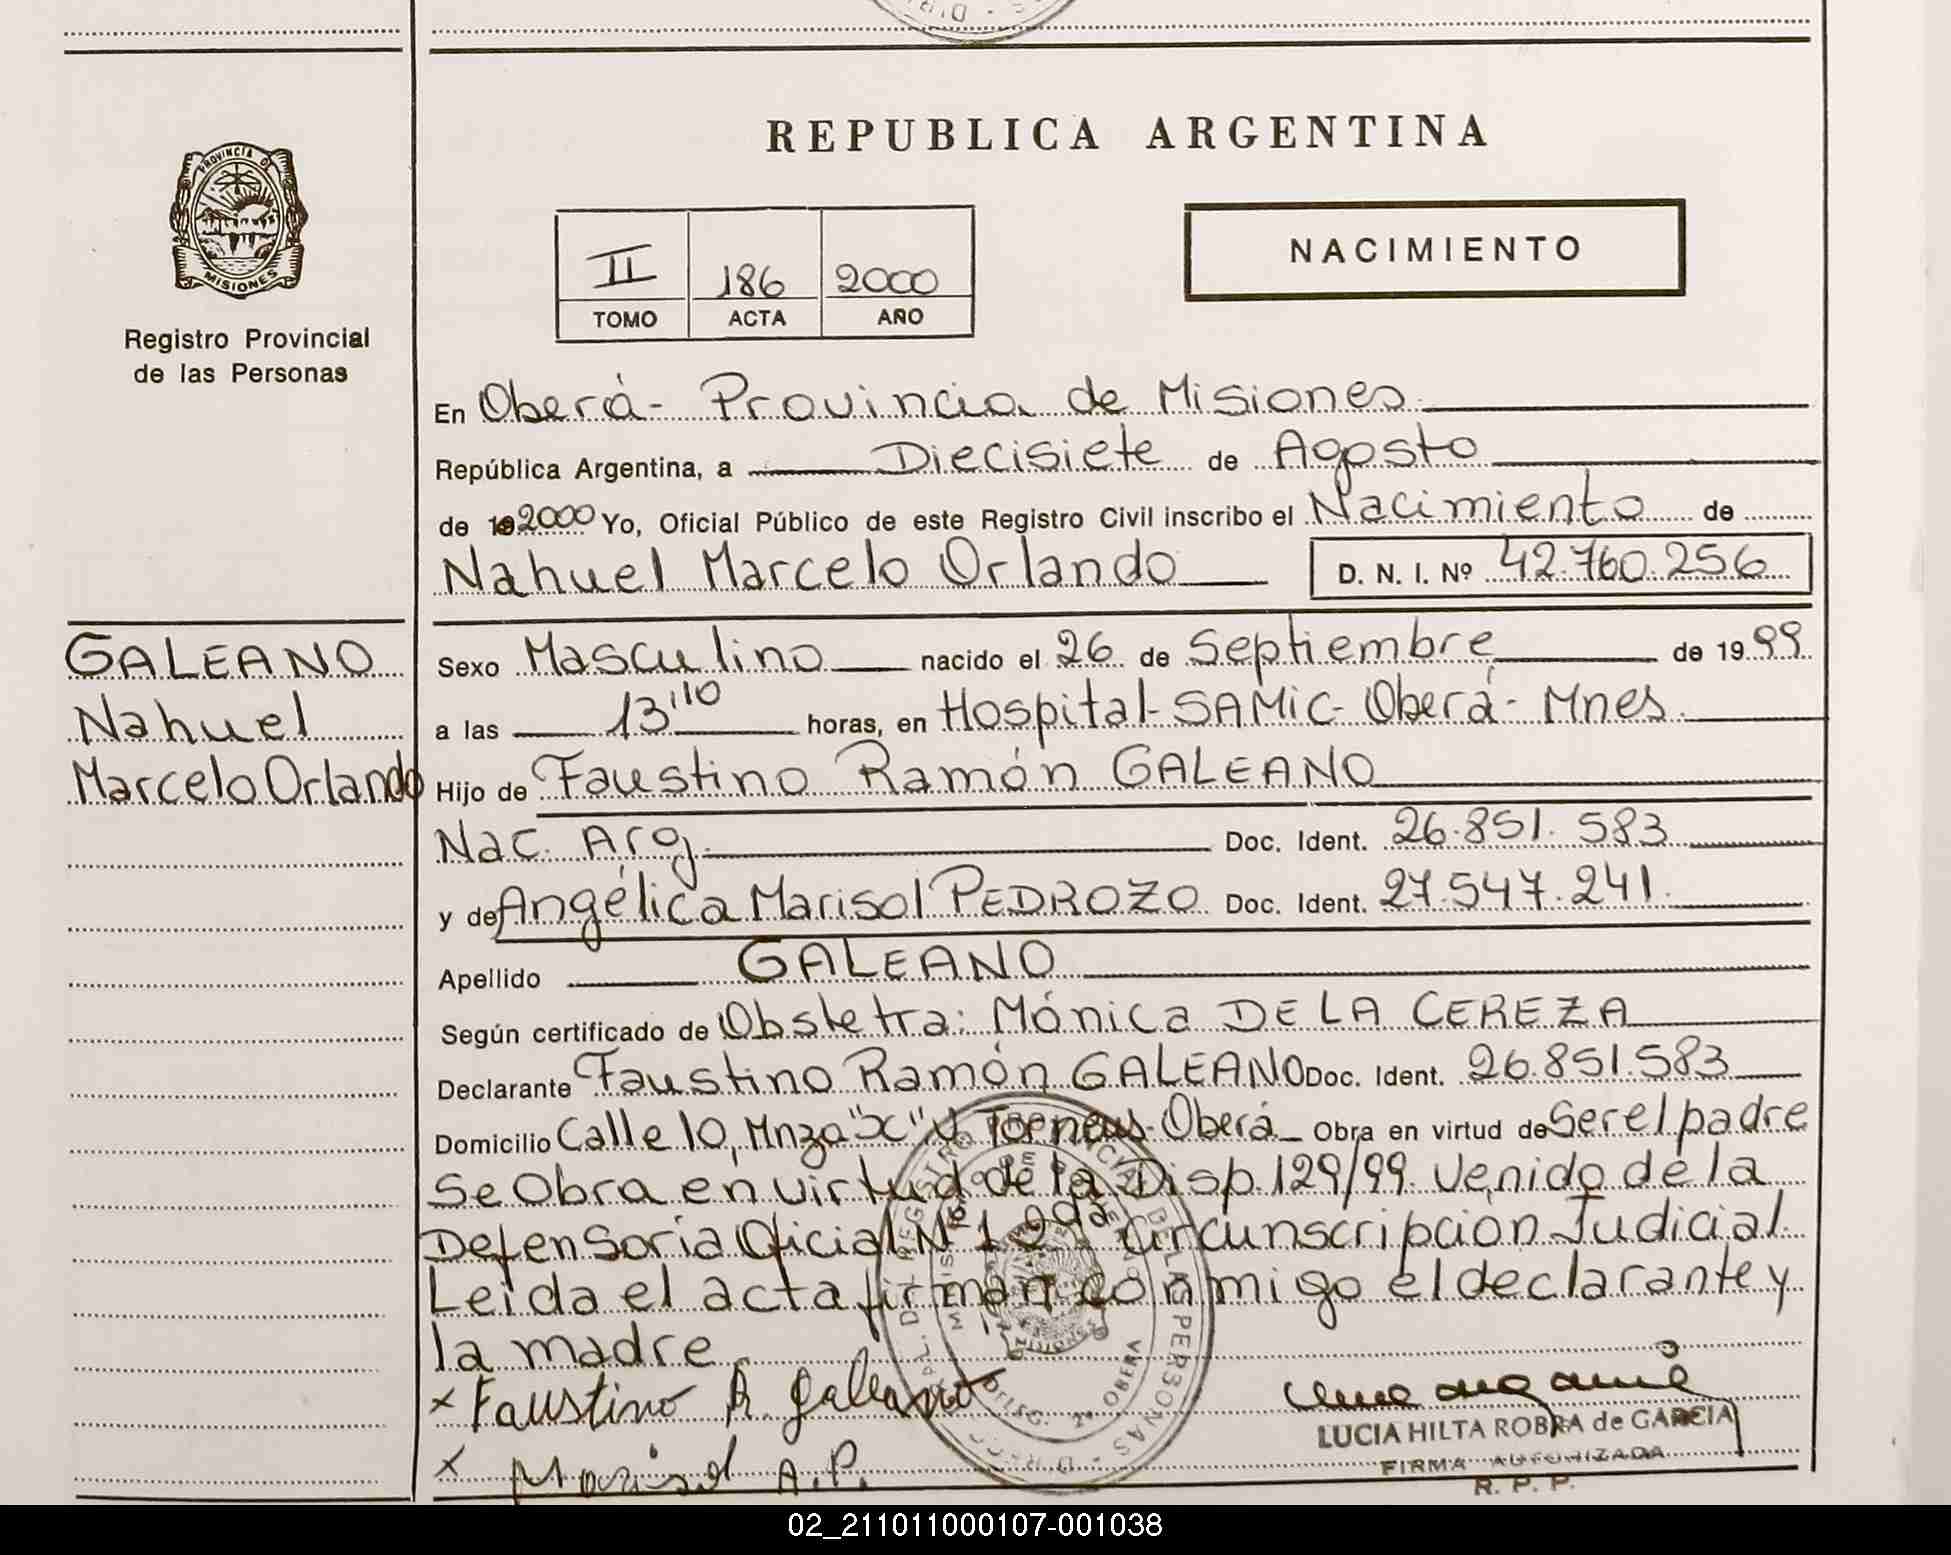 REPUBLICA ARGENTINA
PROVINCIA DE
MISIONES
Registro Provincial
de las Personas
II 186 2000
TOMO ACTA AÑO
NACIMIENTO
En Oberá- Provincia de Misiones
República Argentina, a Diecisiete de Agosto
de 19 2000 Yo, Oficial Público de este Registro Civil inscribo el Nacimiento de
Nahuel Marcelo Orlando D. N. I. Nº 42.760.256
GALEANO
Nahuel
Marcelo Orlando
Sexo Masculino nacido el 26 de Septiembre de 1999
a las 13'10 horas, en Hospital-SAMIC- Oberá- Mnes.
Hijo de Faustino Ramón GALEANO
Nac. Arg. Doc. Ident. 26.851.583
y de Angélica Marisol PEDROZO Doc. Ident. 27.547.241.
Apellido GALEANO
Según certificado de Obstetra: Mónica DE LA CEREZA
Declarante Faustino Ramón GALEANO Doc. Ident. 26.851.583
Domicilio Calle 10, Mnza "X" Oberá Obra en virtud de Ser el padre
Se Obra en virtud de la Disp. 129/99. Venido de la
Defensoria Oficial Nº 1 2da Circunscripción Judicial.
Leida el acta firman conmigo el declarante y
la madre
x Faustino R. Galeano
x Marisol A.P.
LUCIA HILTA ROBRA de GARCIA
FIRMA AUTORIZADA
R. P. P.
02_211011000107-001038